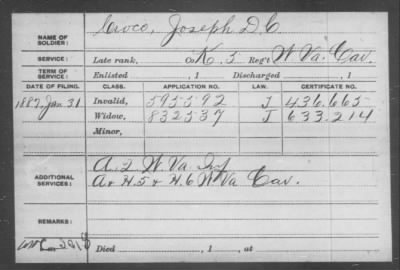 NAME OF SOLDIER: Croco, Joseph D. C.
SERVICE: Late rank, Co K. 5 Reg't W Va. Cav.
TERM OF SERVICE: Enlisted , 1 Discharged , 1
DATE OF FILING. CLASS. APPLICATION NO. LAW. CERTIFICATE NO.
1887, Jan. 31 Invalid, 595592 J 436.665
Widow, 832537 J 633.214
Minor,
ADDITIONAL SERVICES: A. 2 W. Va. Inf
A & H. 5 & H. 6 W Va Cav.
REMARKS:
Died , 1 , at